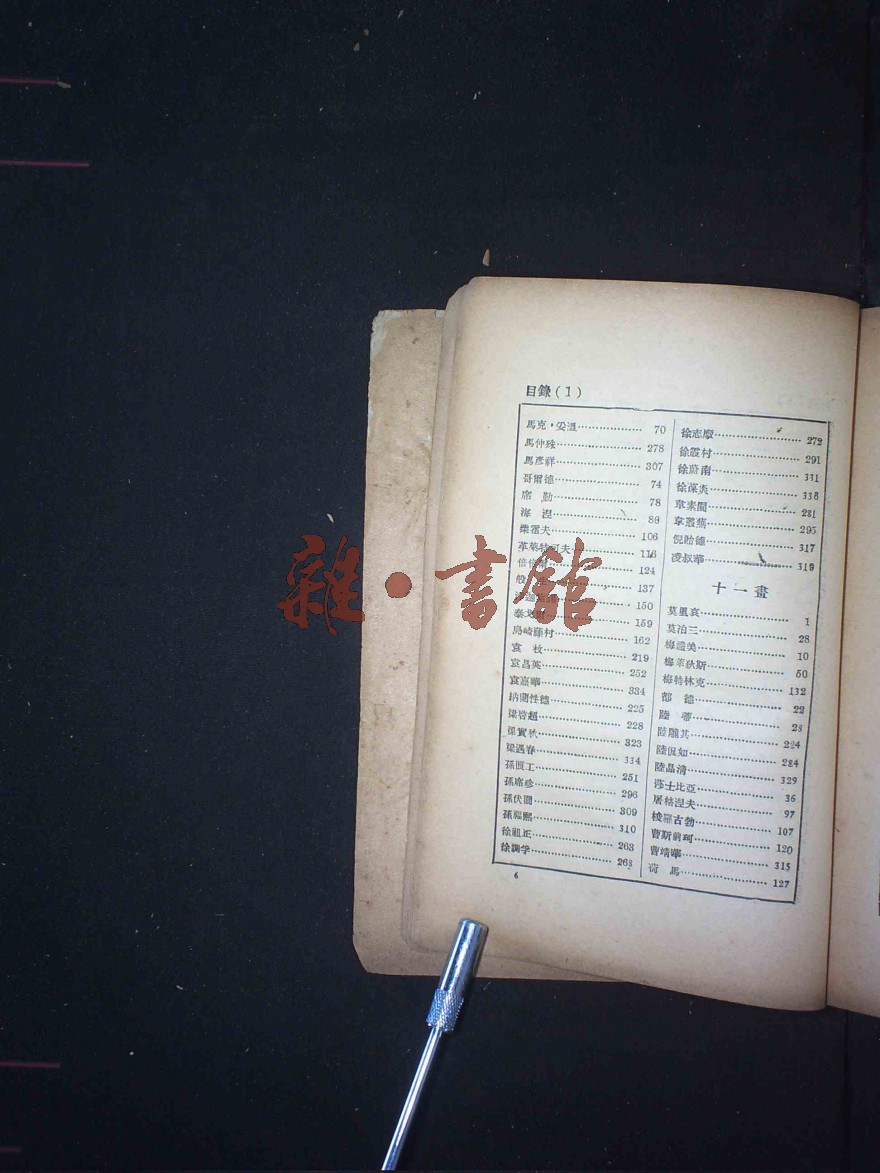 目錄(1)
馬克·安溫 70
馬仲殊 278
馬彥祥 307
哥爾德 74
席勒 78
海涅 88
柴霍夫 106
革萊特可夫 116
倍倍爾 124
137
150
159
島崎藤村 162
袁枚 219
袁昌英 252
袁嘉華 334
納蘭性德 225
梁啓超 228
梁實秋 323
梁遇春 334
孫俍工 251
孫席珍 296
孫伏園 309
孫福熙 310
徐祖正 263
徐調孚 268
徐志摩 272
徐霞村 291
徐蔚南 331
徐葆炎 338
章素園 281
章叢蕪 295
倪貽德 317
凌叔華 319
十一畫
莫里哀 1
莫泊三 28
梅禮美 10
梅萊狄斯 50
梅特林克 132
都德 22
陸蒂 28
陸隴其 224
陸侃如 284
陸晶清 329
莎士比亞 36
屠格涅夫 97
梭羅古勃 107
曹斯前珂 120
曹靖華 315
荷馬 127
6
雜·書館